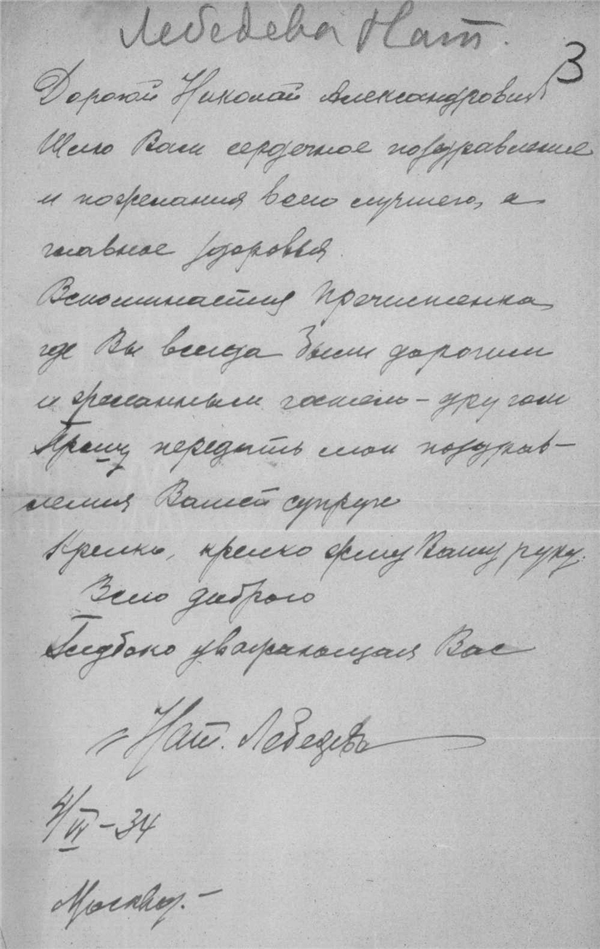 Лебедева Нат.
3
Дорогой Николай Александрович
Шлю Вам сердечное поздравление
и пожелания всего лучшего, а
главное здоровья.
Вспоминается Пречистенка,
где Вы всегда были дорогим
и желанным гостем – другом
Прошу передать мои поздрав-
ления Вашей супруге
Крепко, крепко жму Вашу руку.
Всего доброго
Глубоко уважающая Вас
Нат. Лебедева
4/VI – 34
Москва. –